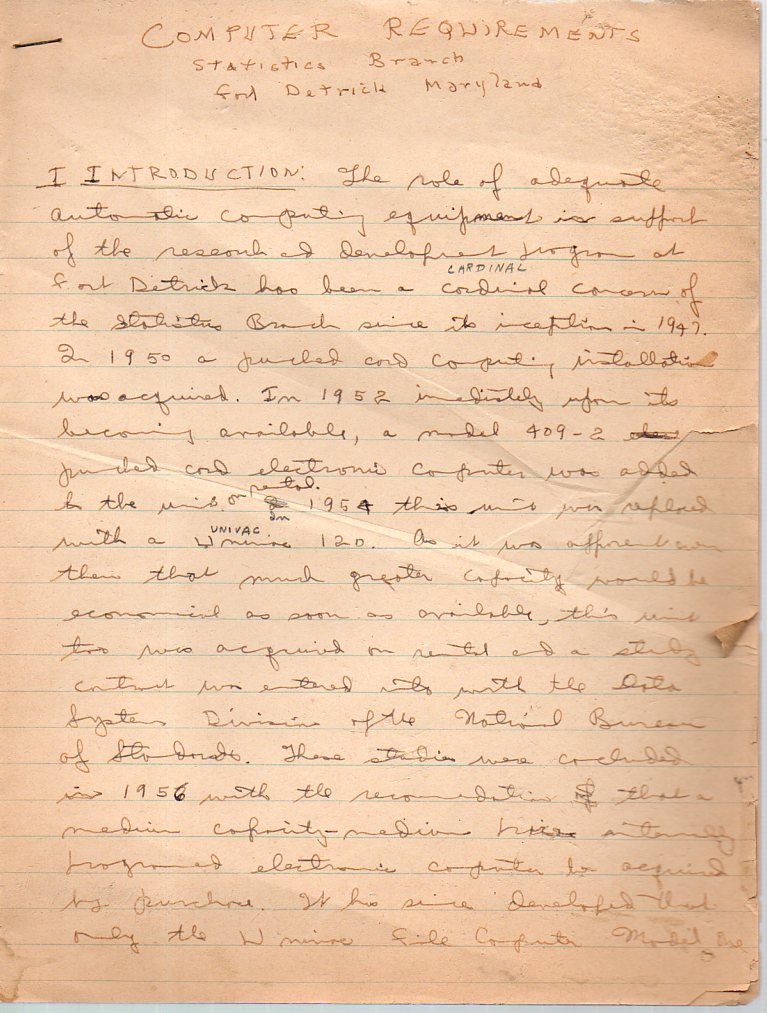 COMPUTER REQUIREMENTS
Statistics Branch
Fort Detrick Maryland
I INTRODUCTION: The role of adequate
automatic computing equipment in support
of the research and development program at
CARDINAL
Fort Detrick has been a cardinal concern of
the Statistics Branch since its inception in 1947.
In 1950 a punched card computing installation
was acquired. In 1952 imediately upon its
becoming available, a model 409-2
punched card electronic computer was added
on rental.
to the unit, In 1954 this unit was replaced
UNIVAC
with a Univac 120. As it was apparent even
then that much greater capacity would be
economical as soon as available, this unit
too was acquired on rental and a study
contract was entered into with the Data
Systems Division of the National Bureau
of Standards. These studies were concluded
in 1956 with the recomendation that a
medium capacity-medium price internally
programed electronic computer be acquired
by purchase. It has since developed that
only the Univac File Computer Model One